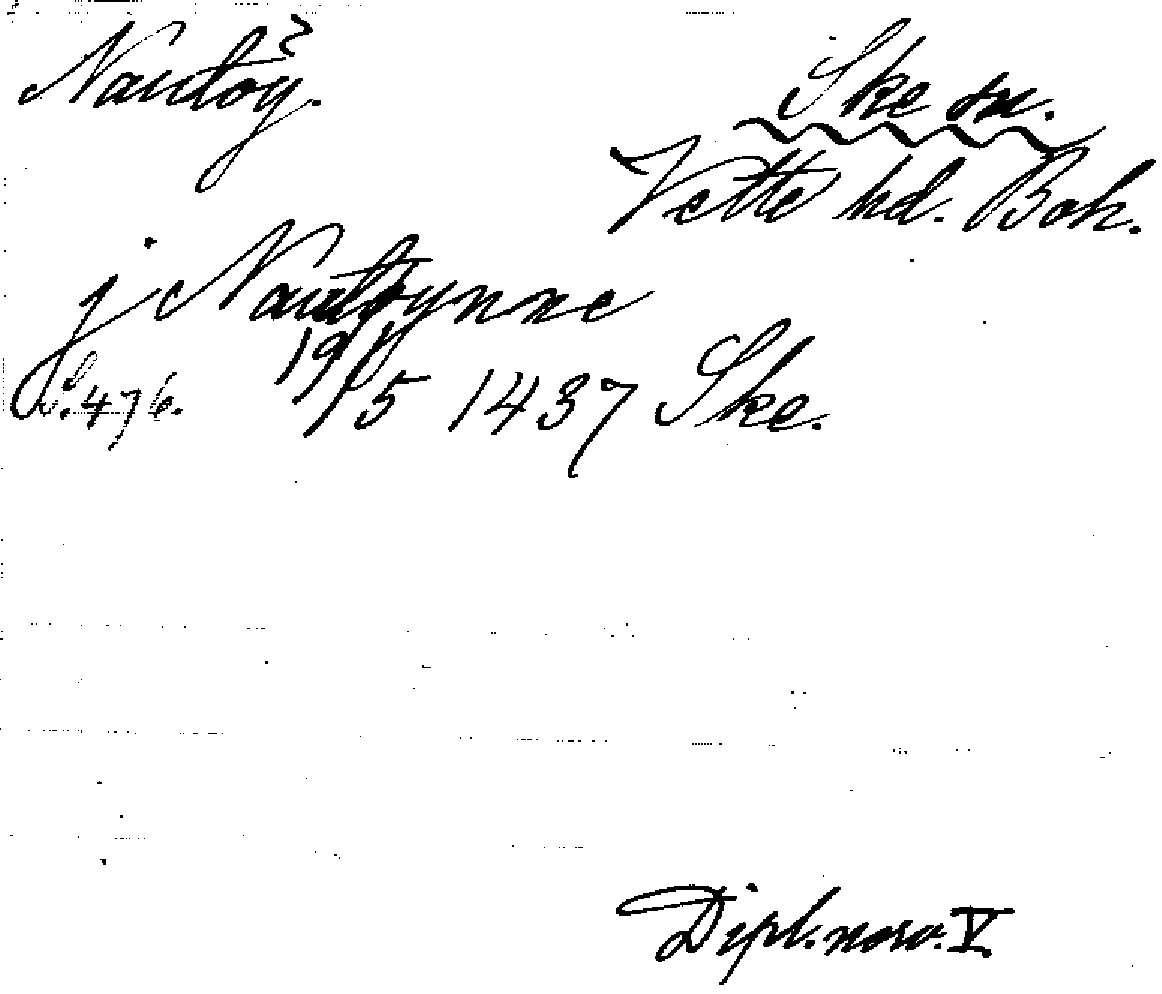 Nautøy. ?
Ske sn.
Vette hd. Boh.
j Nautøynne
S. 476. 19/5 1437 Ske.
Dipl. norv. V.